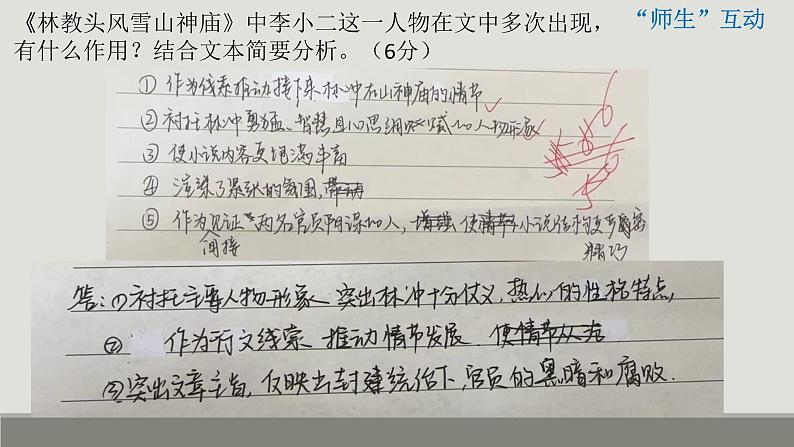 《林教头风雪山神庙》中李小二这一人物在文中多次出现，
有什么作用？结合文本简要分析。（6分）
“师生”互动
① 作为线索推动接下来林冲在山神庙的情节
② 衬托林冲勇猛、智慧且心思细腻的人物形象
③ 使小说内容更增满丰富
④ 渲染了紧张的氛围,
⑤ 作为见证两名官员阴谋的人, 使小说结构更
间接
精巧
答:(1)衬托主要人物形象 突出林冲十分仗义,热心的性格特点,
② 作为行文线索 推动情节发展
③突出文章主旨,反映出封建统治下,官员的黑暗和腐败.